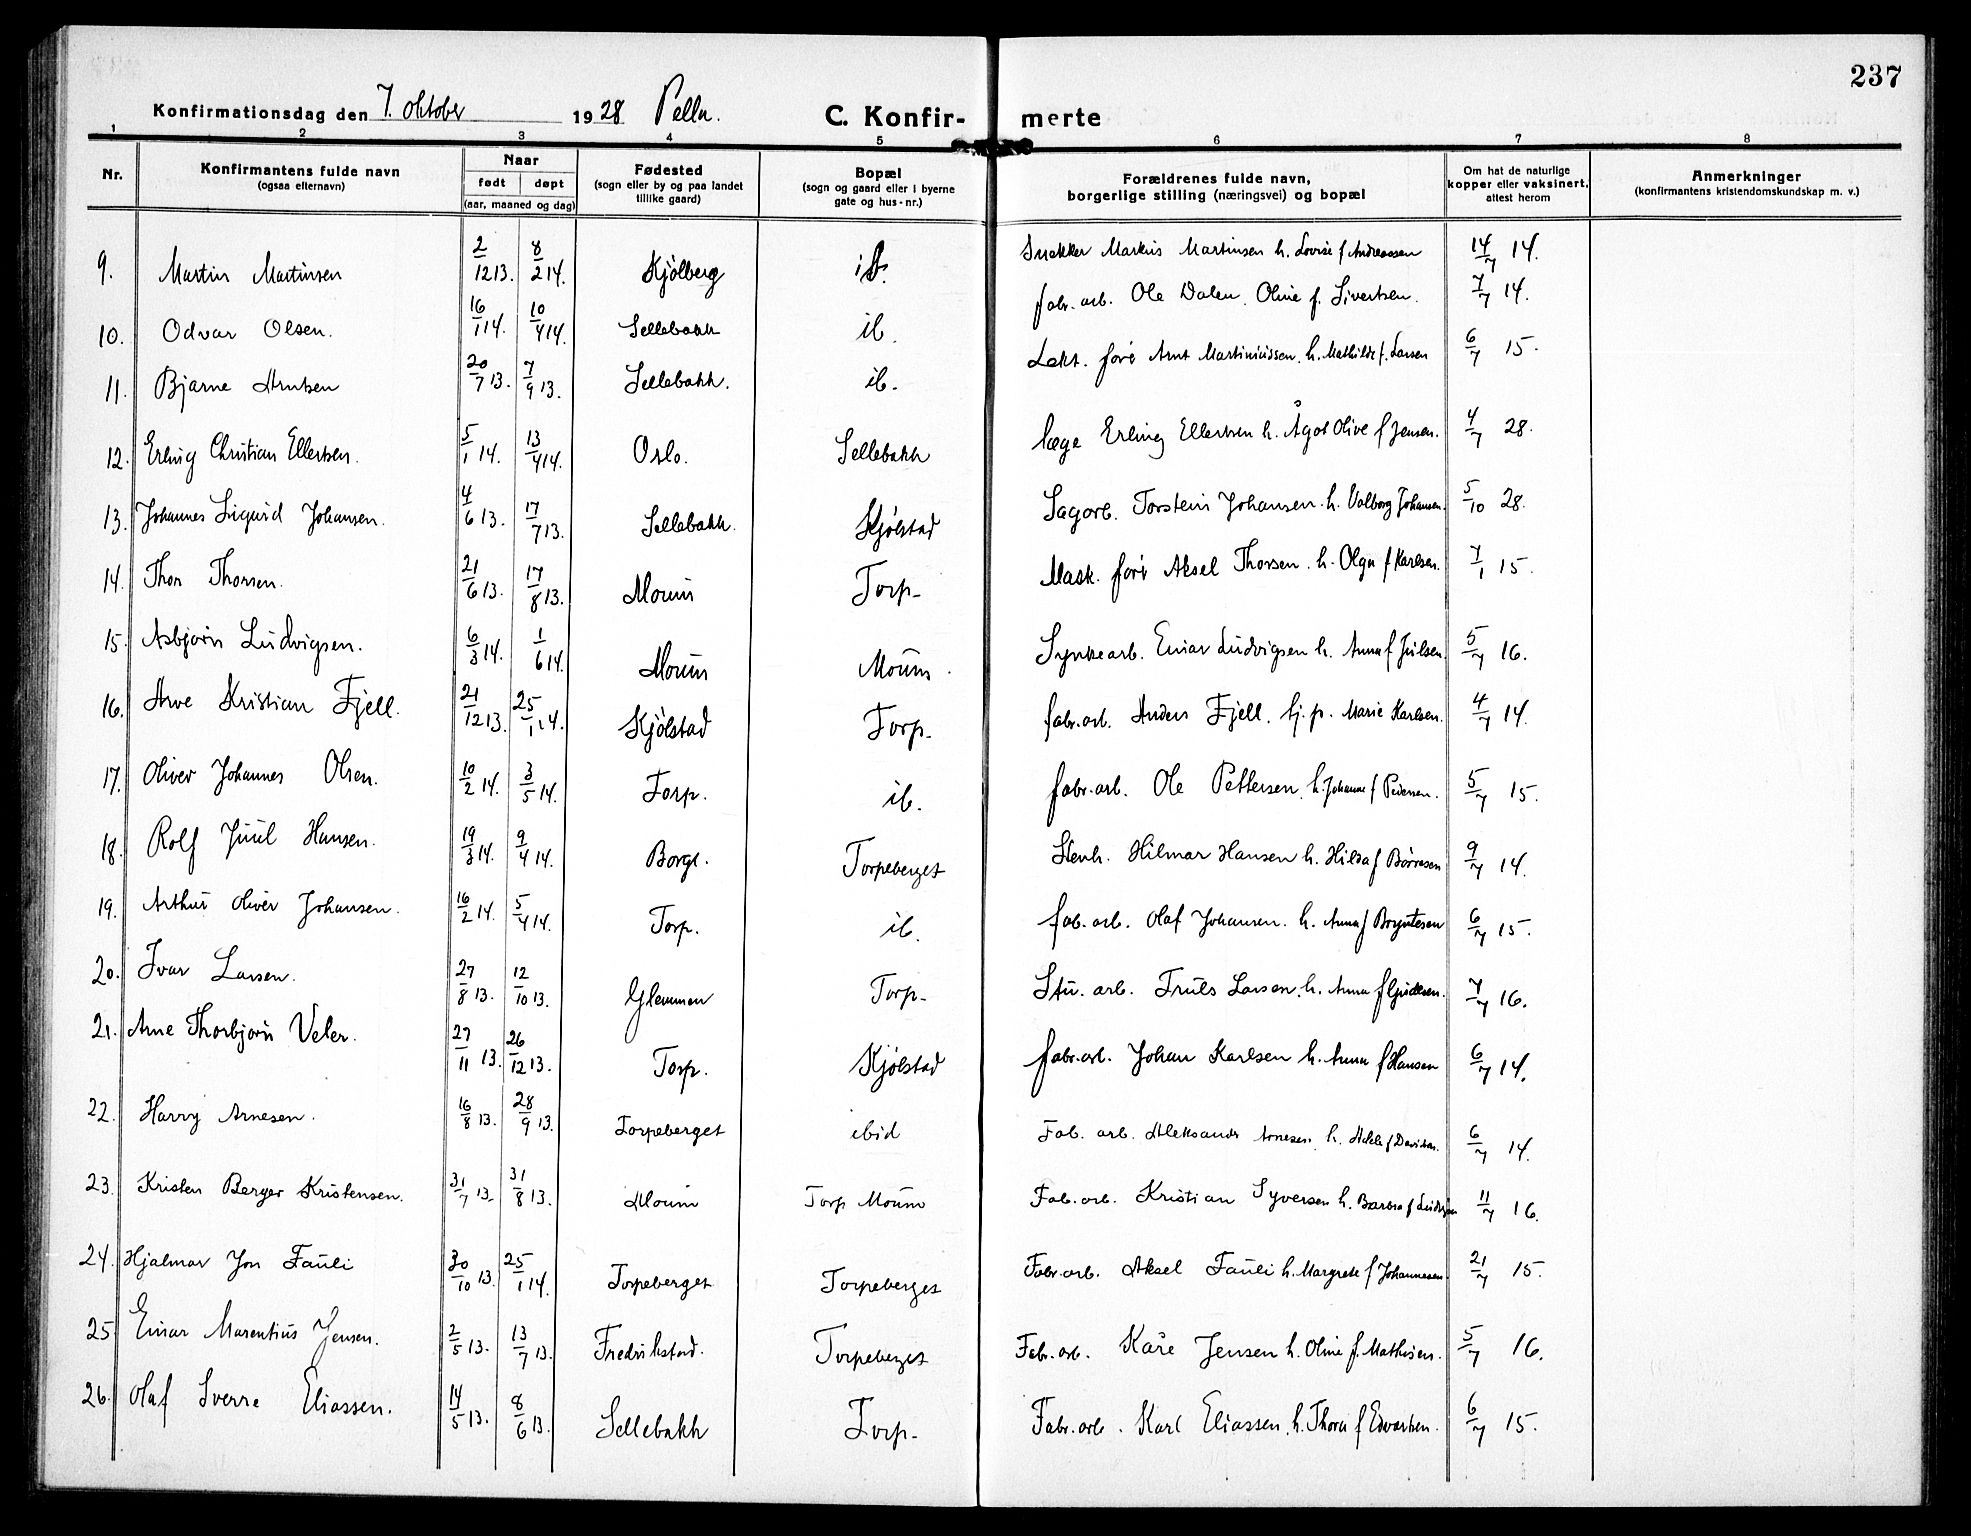 237
Konfirmationsdag den 7. oktober 1928 Pella. C. Konfirmerte
1 2 3 4 5 6 7 8
Nr. Konfirmantens fulde navn (ogsaa efternavn) Naar født døpt (aar, maaned og dag) Fødested (sogn eller by og paa landet tillike gaard) Bopæl (sogn og gaard eller i byerne gate og hus-nr.) Forældrenes fulde navn, borgerlige stilling (næringsvei) og bopæl Om hat de naturlige kopper eller vaksinert, attest herom Anmerkninger (konfirmantens kristendomskundskap m. v.)
9. Martin Martinsen 2/12 13. 8/2 14. Kjölberg ib. Snekker Markus Martinsen h. Lovise f Andreassen 14/7 14.
10. Odvar Olsen. 16/1 14. 10/4 14. Sellebakk ib. fabr. arb. Ole Dalen. Oline f. Sivertsen. 7/7 14.
11. Bjarne Arntsen 20/7 13. 7/9 13. Sellebakk. ib. Lokt. förer Arnt Martiniussen. h. Mathilde f. Larsen 6/7 15.
12. Erling Christian Ellertsen. 5/1 14. 13/4 14. Oslo. Sellebakk læge Erling Ellertsen h. Ågot Olive f Jensen. 4/7 28.
13. Johannes Sigurd Johansen. 4/6 13. 17/7 13. Sellebakk. Kjölstad Sagarb. Torstein Johansen. h. Valborg Johansen. 5/10 28.
14. Thor Thorsen. 21/6 13. 17/8 13. Moum Torp. Mask. förer Aksel Thorsen. h. Olga f Karlsen. 7/1 15.
15. Asbjørn Ludvigsen. 6/3 14. 1/6 14. Moum Moum. arb. Einar Ludvigsen h. Anna f Julsen. 5/7 16.
16. Arve Kristian Fjell. 21/12 13. 25/1 14. Kjölstad Torp. fabr. arb. Anders Fjell. Marie Karlsen. 4/7 14.
17. Oliver Johannes Olsen. 10/2 14. 3/5 14. Torp. ib. fabr. arb. Ole Pettersen. h. Johanne f Pedersen. 5/7 15.
18. Rolf Juul Hansen. 19/3 14. 9/4 14. Borge. Torpeberget Stenh. Hilmar Hansen h. Hilda f Børresen 9/7 14.
19. Arthur Oliver Johansen. 16/2 14. 5/4 14. Torp. ib. fab. arb. Olaf Johansen. h. Anna f 6/7 15.
20. Ivar Larsen. 27/8 13. 12/10 13. Glemmen Torp. Stu. arb. Truls Larsen. h. Anna f 7/7 16.
21. Arne Thorbjørn Veler. 27/11 13. 26/12 13. Torp. Kjölstad fabr. arb. Johan Karlsen h. Anna f Hansen 6/7 14.
22. Harry Arnesen. 16/8 13. 28/9 13. Torpeberget ibid Fab. arb. Aleksander Arnesen h. Adele f Davidsen. 6/7 14.
23. Kristen Berger Kristensen. 31/7 13. 31/8 13. Moum Torp Moum Fab. arb. Kristian Syversen h. Barbra f Ludvigsen 11/7 16.
24. Hjalmar Jon Fauli 30/10 13. 25/1 14. Torpeberget Torpeberget Fabr. arb. Aksel Fauli h. Margrete f Johannesen. 21/7 15.
25. Einar Marentius Jensen. 2/5 13. 13/7 13. Fredrikstad. Torpeberget Fabr. arb. Kåre Jensen h. Oline f. Mathisen. 5/7 16.
26. Olaf Sverre Eliassen. 14/5 13. 8/6 13. Sellebakk Torp. Fabr. arb. Karl Eliassen. h. Thora f Edvartsen. 6/7 15.